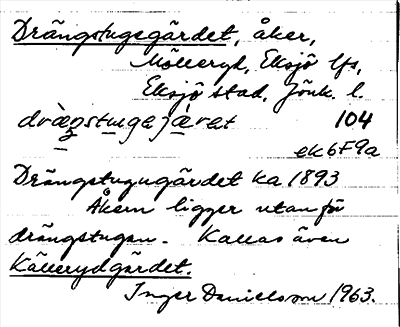 Drängstugegärdet, åker,
Mölleryd, Eksjö lfs,
Eksjö stad, Jönk. l.
dräŋstugejäret 104
ek6F9a
Drängstugugärdet ka 1893
Åkern ligger utanför
drängstugan. Kallas även
Källerydgärdet.
Inger Danielsson 1963.